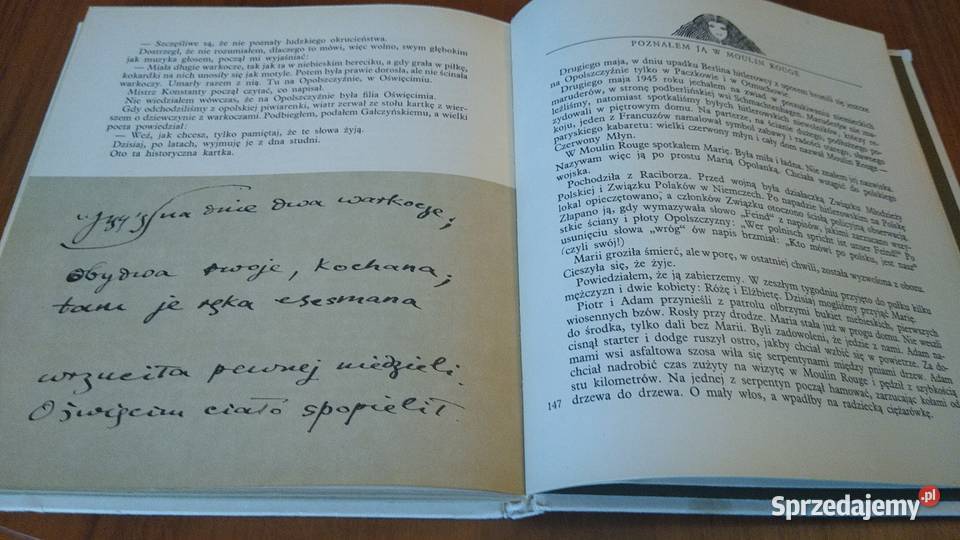 — Szczęśliwe są, że nie poznały ludzkiego okrucieństwa.
Dostrzegł, że nie rozumiałem, dlaczego to mówi, więc wolno, swym głębokim
jak muzyka głosem, począł mi wyjaśniać:
— Miała długie warkocze, tak jak ta w niebieskim bereciku, a gdy grała w piłkę,
kokardki na nich unosiły się jak motyle. Potem była prawie dorosła, ale nie ścinała
warkoczy. Umarły razem z nią. Tu na Opolszczyźnie, w Oświęcimiu.
Mistrz Konstanty począł czytać, co napisał.
Nie wiedziałem wówczas, że na Opolszczyźnie była filia Oświęcimia.
Gdy odchodziliśmy z opolskiej piwiarenki, wiatr zerwał ze stołu kartkę z wier-
szem o dziewczynie z warkoczami. Podbiegłem, podałem Gałczyńskiemu, a wielki
poeta powiedział:
— Weź, jak chcesz, tylko pamiętaj, że te słowa żyją.
Dzisiaj, po latach, wyjmuję je z dna studni.
Oto ta historyczna kartka.
na dnie dwa warkocze;
obydwa twoje, kochana;
tam je ręka esesmana
wrzuciła pewnej niedzieli.
Oświęcim ciało spopielił
POZNAŁEM JĄ W MOULIN ROUGE
Drugiego maja, w dniu upadku Berlina hitlerowcy z uporem bronili się jeszcze
na Opolszczyźnie tylko w Paczkowie i w Otmuchowie.
Drugiego maja 1945 roku jechałem na zwiad w poszukiwaniu niemieckich
maruderów, w stronę podberlińskiej wsi Schmachtenhagen. Maruderów nie zna-
leźliśmy, natomiast spotkaliśmy byłych hitlerowskich niewolników, którzy re-
zydowali w piętrowym domu. Na parterze, na ścianie dużego, podłużnego po-
koju, jeden z Francuzów namalował symbol zabawy i radości starego, sławnego
paryskiego kabaretu: wielki czerwony młyn i cały dom nazwał Moulin Rouge —
Czerwony Młyn.
W Moulin Rouge spotkałem Marię. Była miła i ładna. Nie znałem jej nazwiska.
Nazywam więc ją po prostu Marią Opolanką. Chciała wstąpić do polskiego
wojska.
Pochodziła z Raciborza. Przed wojną była działaczką Związku Młodzieży
Polskiej i Związku Polaków w Niemczech. Po napadzie hitlerowskim na Polskę
lokal opieczętowano, a członków Związku otoczono ścisłą policyjną obserwacją.
Złapano ją, gdy wymazywała słowo „Feind” z napisów, jakimi zarzucano wszy-
stkie ściany i płoty Opolszczyzny: „Wer polnisch spricht ist unser Feind!” Po
usunięciu słowa „wróg” ów napis brzmiał: „Kto mówi po polsku, jest nasz”
(czyli swój!)
Marii groziło śmierć, ale w porę, w ostatniej chwili, została wyzwolona z obozu.
Cieszyła się, że żyje.
Powiedziałem, że ją zabierzemy. W zeszłym tygodniu przyjęto do pułku kilku
mężczyzn i dwie kobiety: Różę i Elżbietę. Dzisiaj mogliśmy przyjąć Marię.
Piotr i Adam przynieśli z patrolu olbrzymi bukiet niebieskich, pierwszych
wiosennych bzów. Rosły przy drodze. Maria stała już w progu domu. Nie weszli
do środka, tylko dali bez Marii. Byli zadowoleni, że jedzie z nami. Adam na-
cisnął starter i dodge ruszył ostro, jakby chciał wzbić się w powietrze. Za do-
mami wsi asfaltowa szosa wiła się serpentynami między pniami drzew. Adam
chciał nadrobić czas zużyty na wizytę w Moulin Rouge i pędził z szybkością
stu kilometrów. Na jednej z serpentyn począł hamować, zarzucając kołami od
drzewa do drzewa. O mały włos, a wpadłby na radziecką ciężarówkę.
147
Sprzedajemy.pl